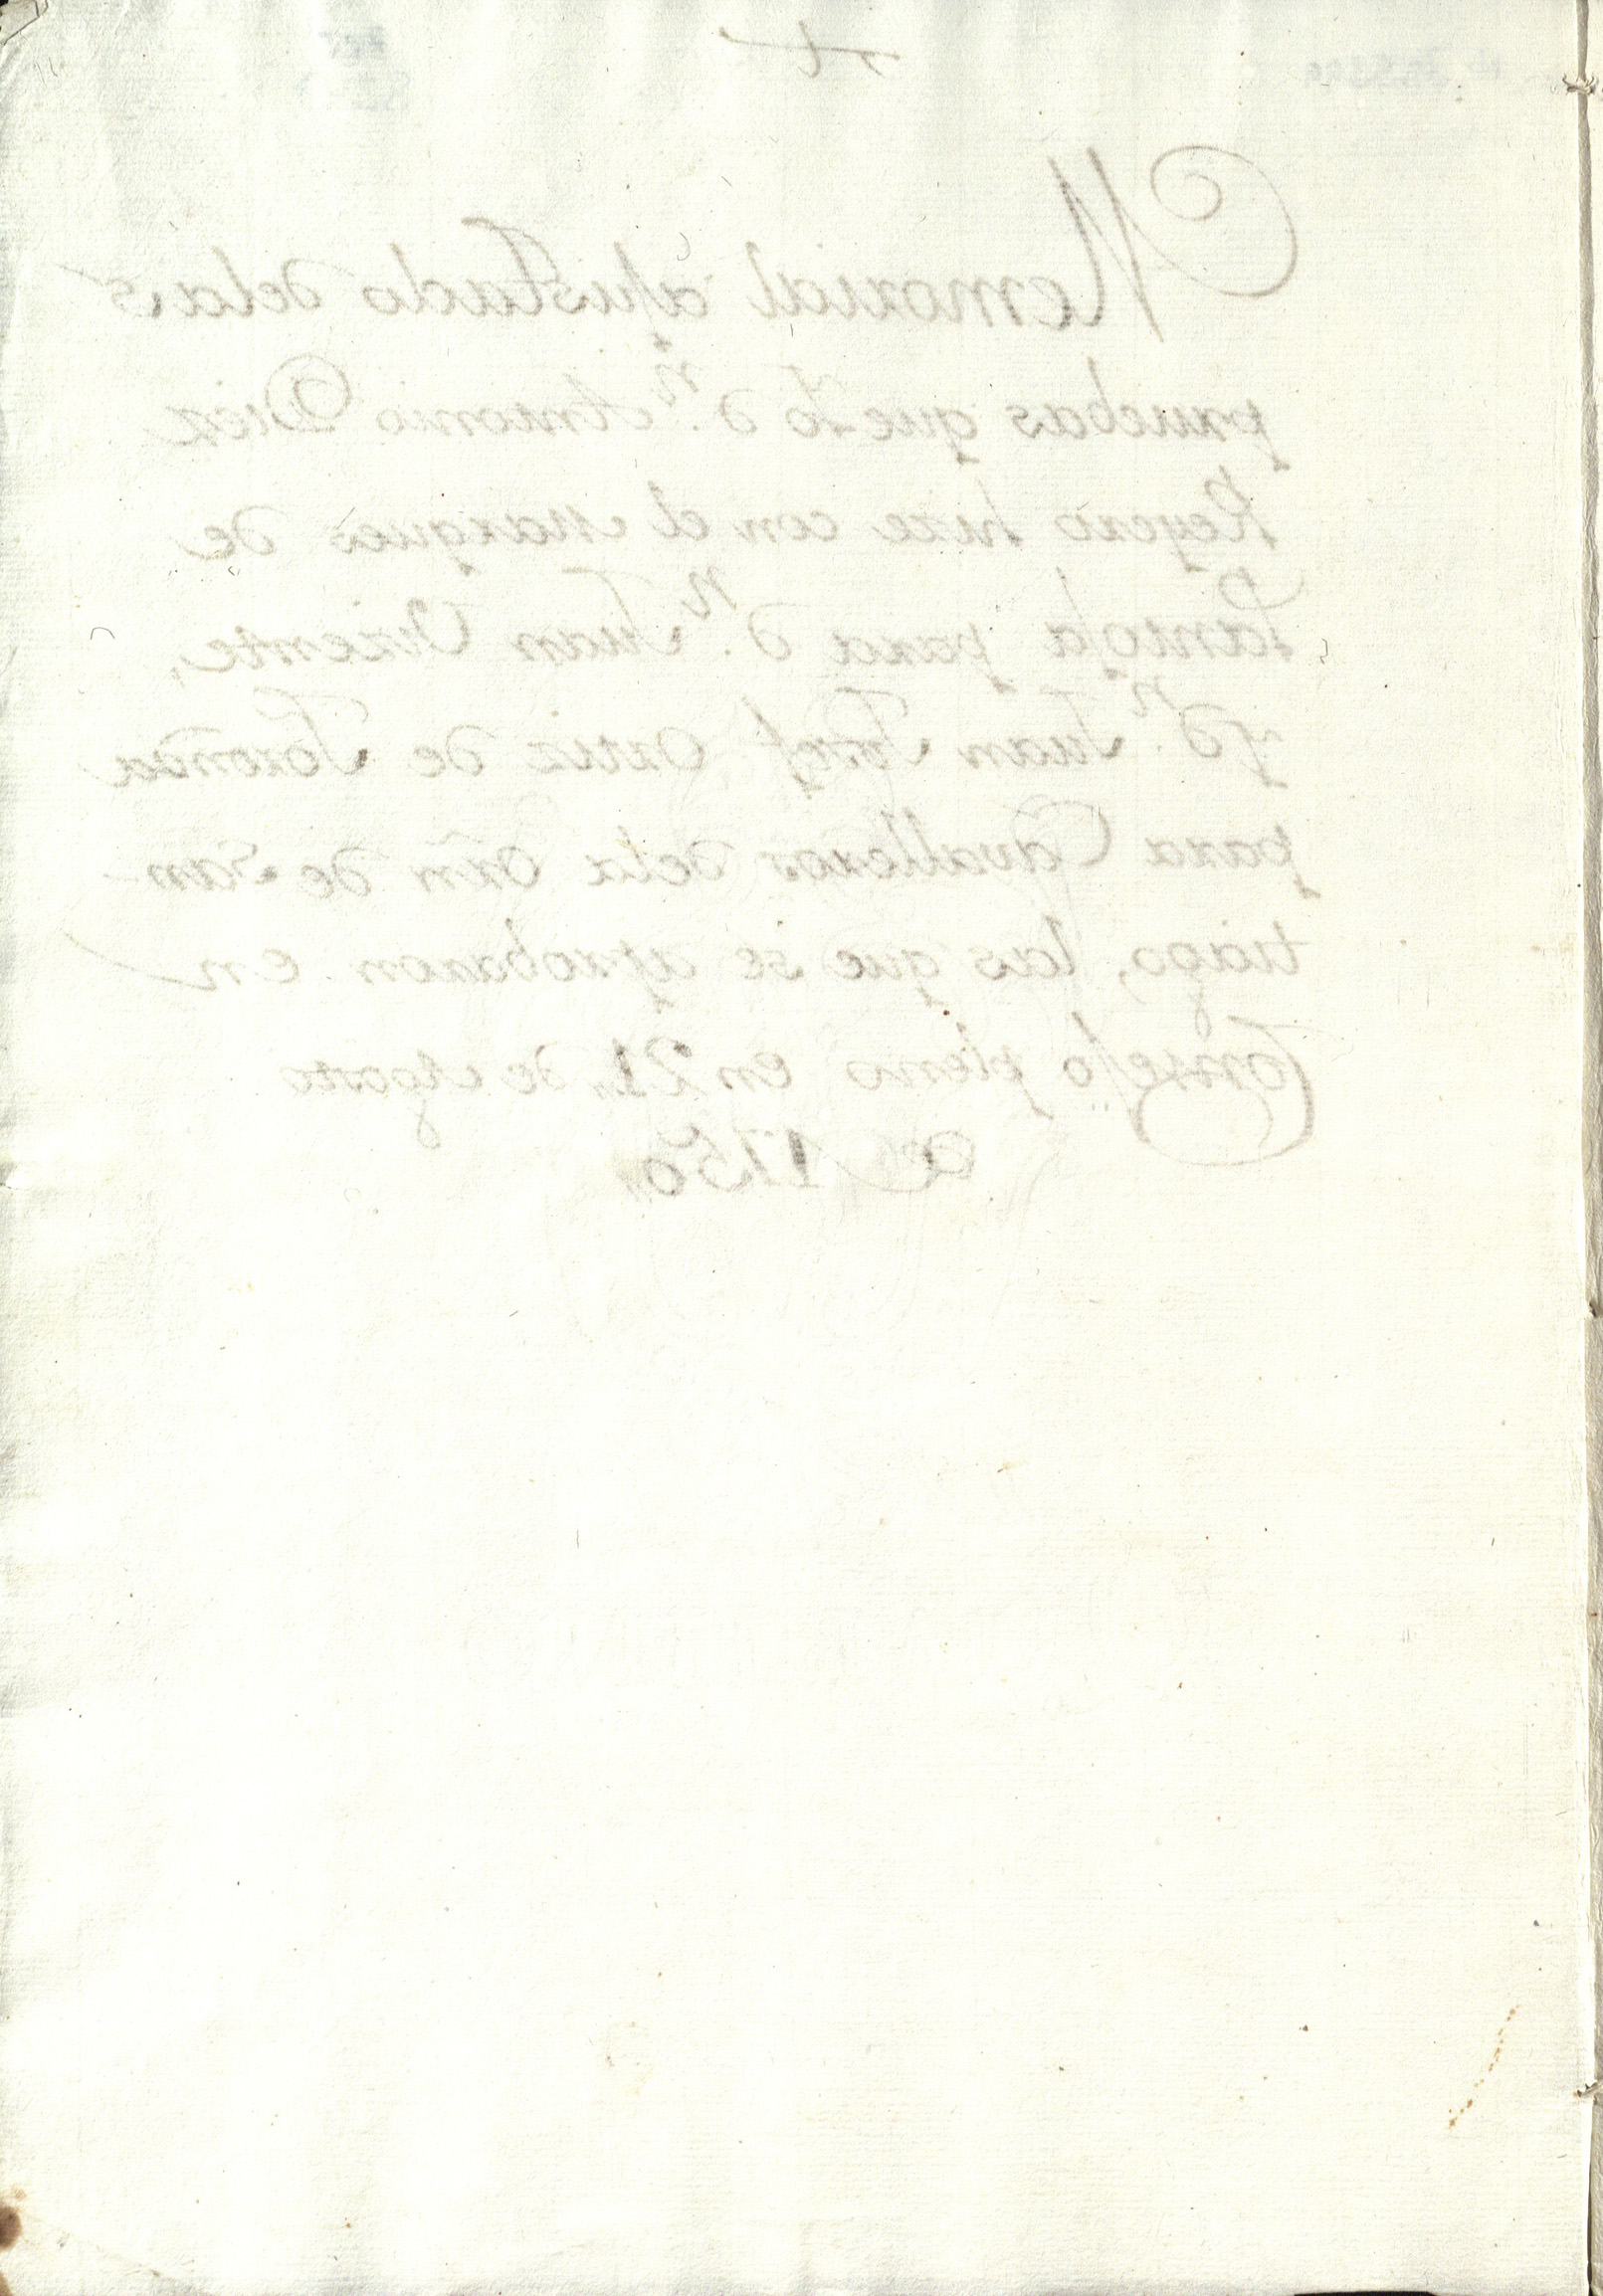 Memorial ajustado delas
pruebas que Yo dn. Antonio Diez
Reyero hize con el Marques de
Pantoja para dn. Juan Vizente,
y dn. Juan Joseph Ortiz de Foronda
para Cavalleros dela orñ de San-
tiago, las que se aprobaron en
Consejo pleno en 21, de Agosto
de 1750,